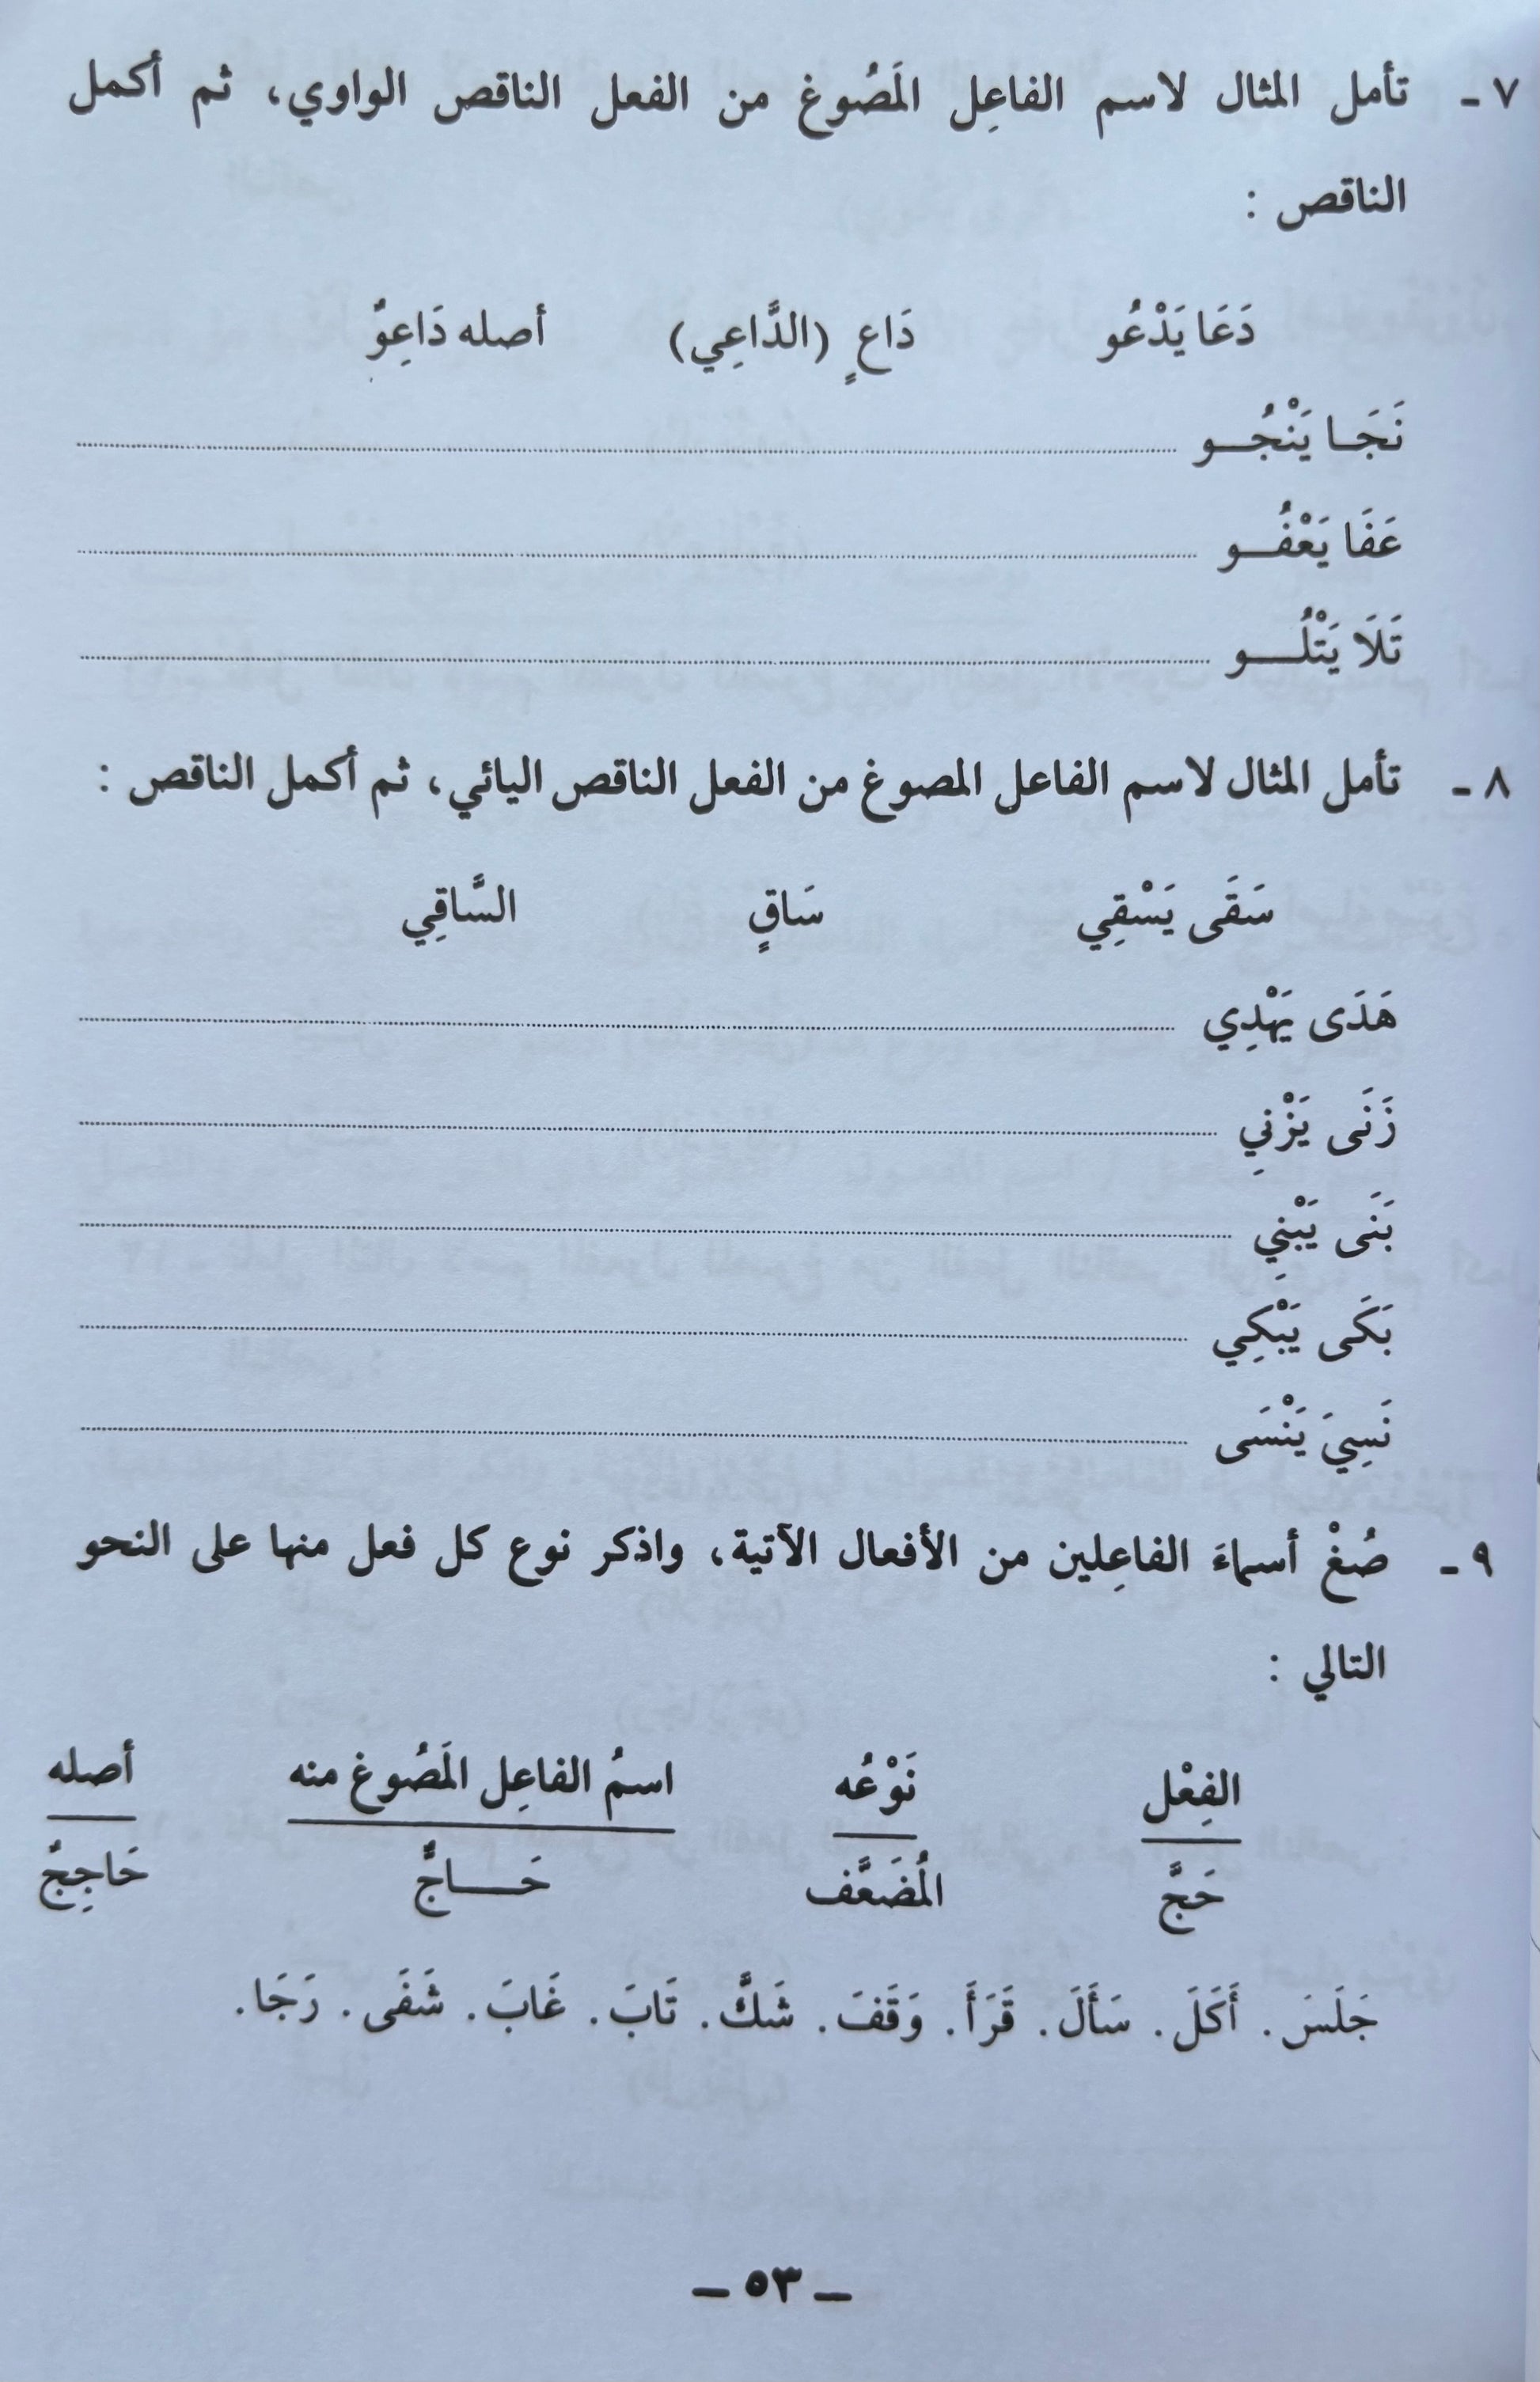 ٧ ـ تأمل المثال لاسم الفاعِل المَصُوغ من الفعل الناقص الواوي، ثم أكمل
الناقص :
دَعَا يَدْعُو دَاعٍ (الدَّاعِي) أصله دَاعِوٌ
نَجَـا يَنْجُـو
عَفَا يَعْفُـو
تَلَا يَتْلُـو
٨ ـ تأمل المثال لاسم الفاعل المصوغ من الفعل الناقص اليائي، ثم أكمل الناقص :
سَقَى يَسْقِي سَاقٍ السَّاقِي
هَدَى يَهْدِي
زَنَى يَزْنِي
بَنَى يَبْنِي
بَكَى يَبْكِي
نَسِيَ يَنْسَى
٩ ـ صُغْ أسماءَ الفاعِلين من الأفعال الآتية، واذكر نوع كل فعل منها على النحو
التالي :
الفِعْل نَوْعُه اسمُ الفاعِل المَصُوغ منه أصله
حَجَّ المُضَعَّف حَـاجٌّ حَاجِجٌ
جَلَسَ . أَكَلَ . سَأَلَ . قَرَأَ . وَقَفَ . شَكَّ . تَابَ . غَابَ . شَفَى . رَجَا .
ـ ٥٣ ـ